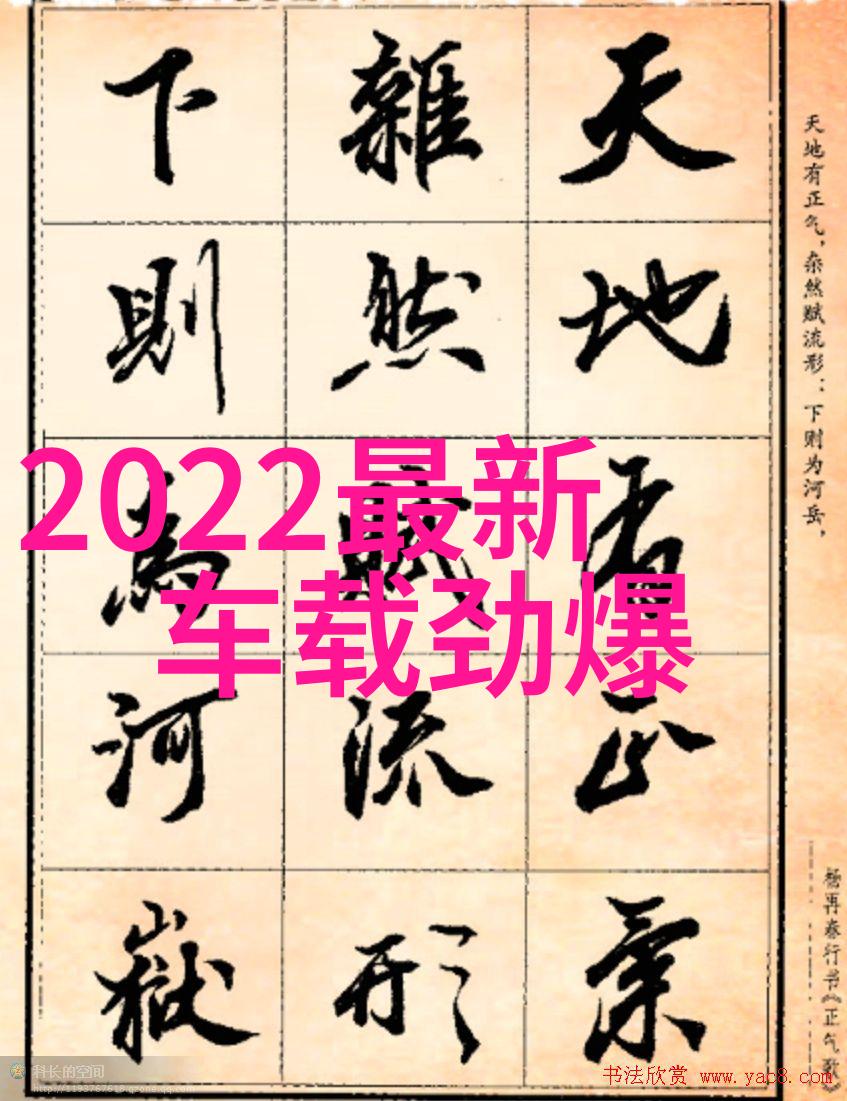 天地有正氣
雜然賦流形
下則為河嶽
天地有正气，杂然赋流形：下则为河岳，
杨再春行书《正气歌》
2022最新
车载劲爆
科长的空间
http://1193767618.qzone.qq.com
书法欣赏 www.yac8.com